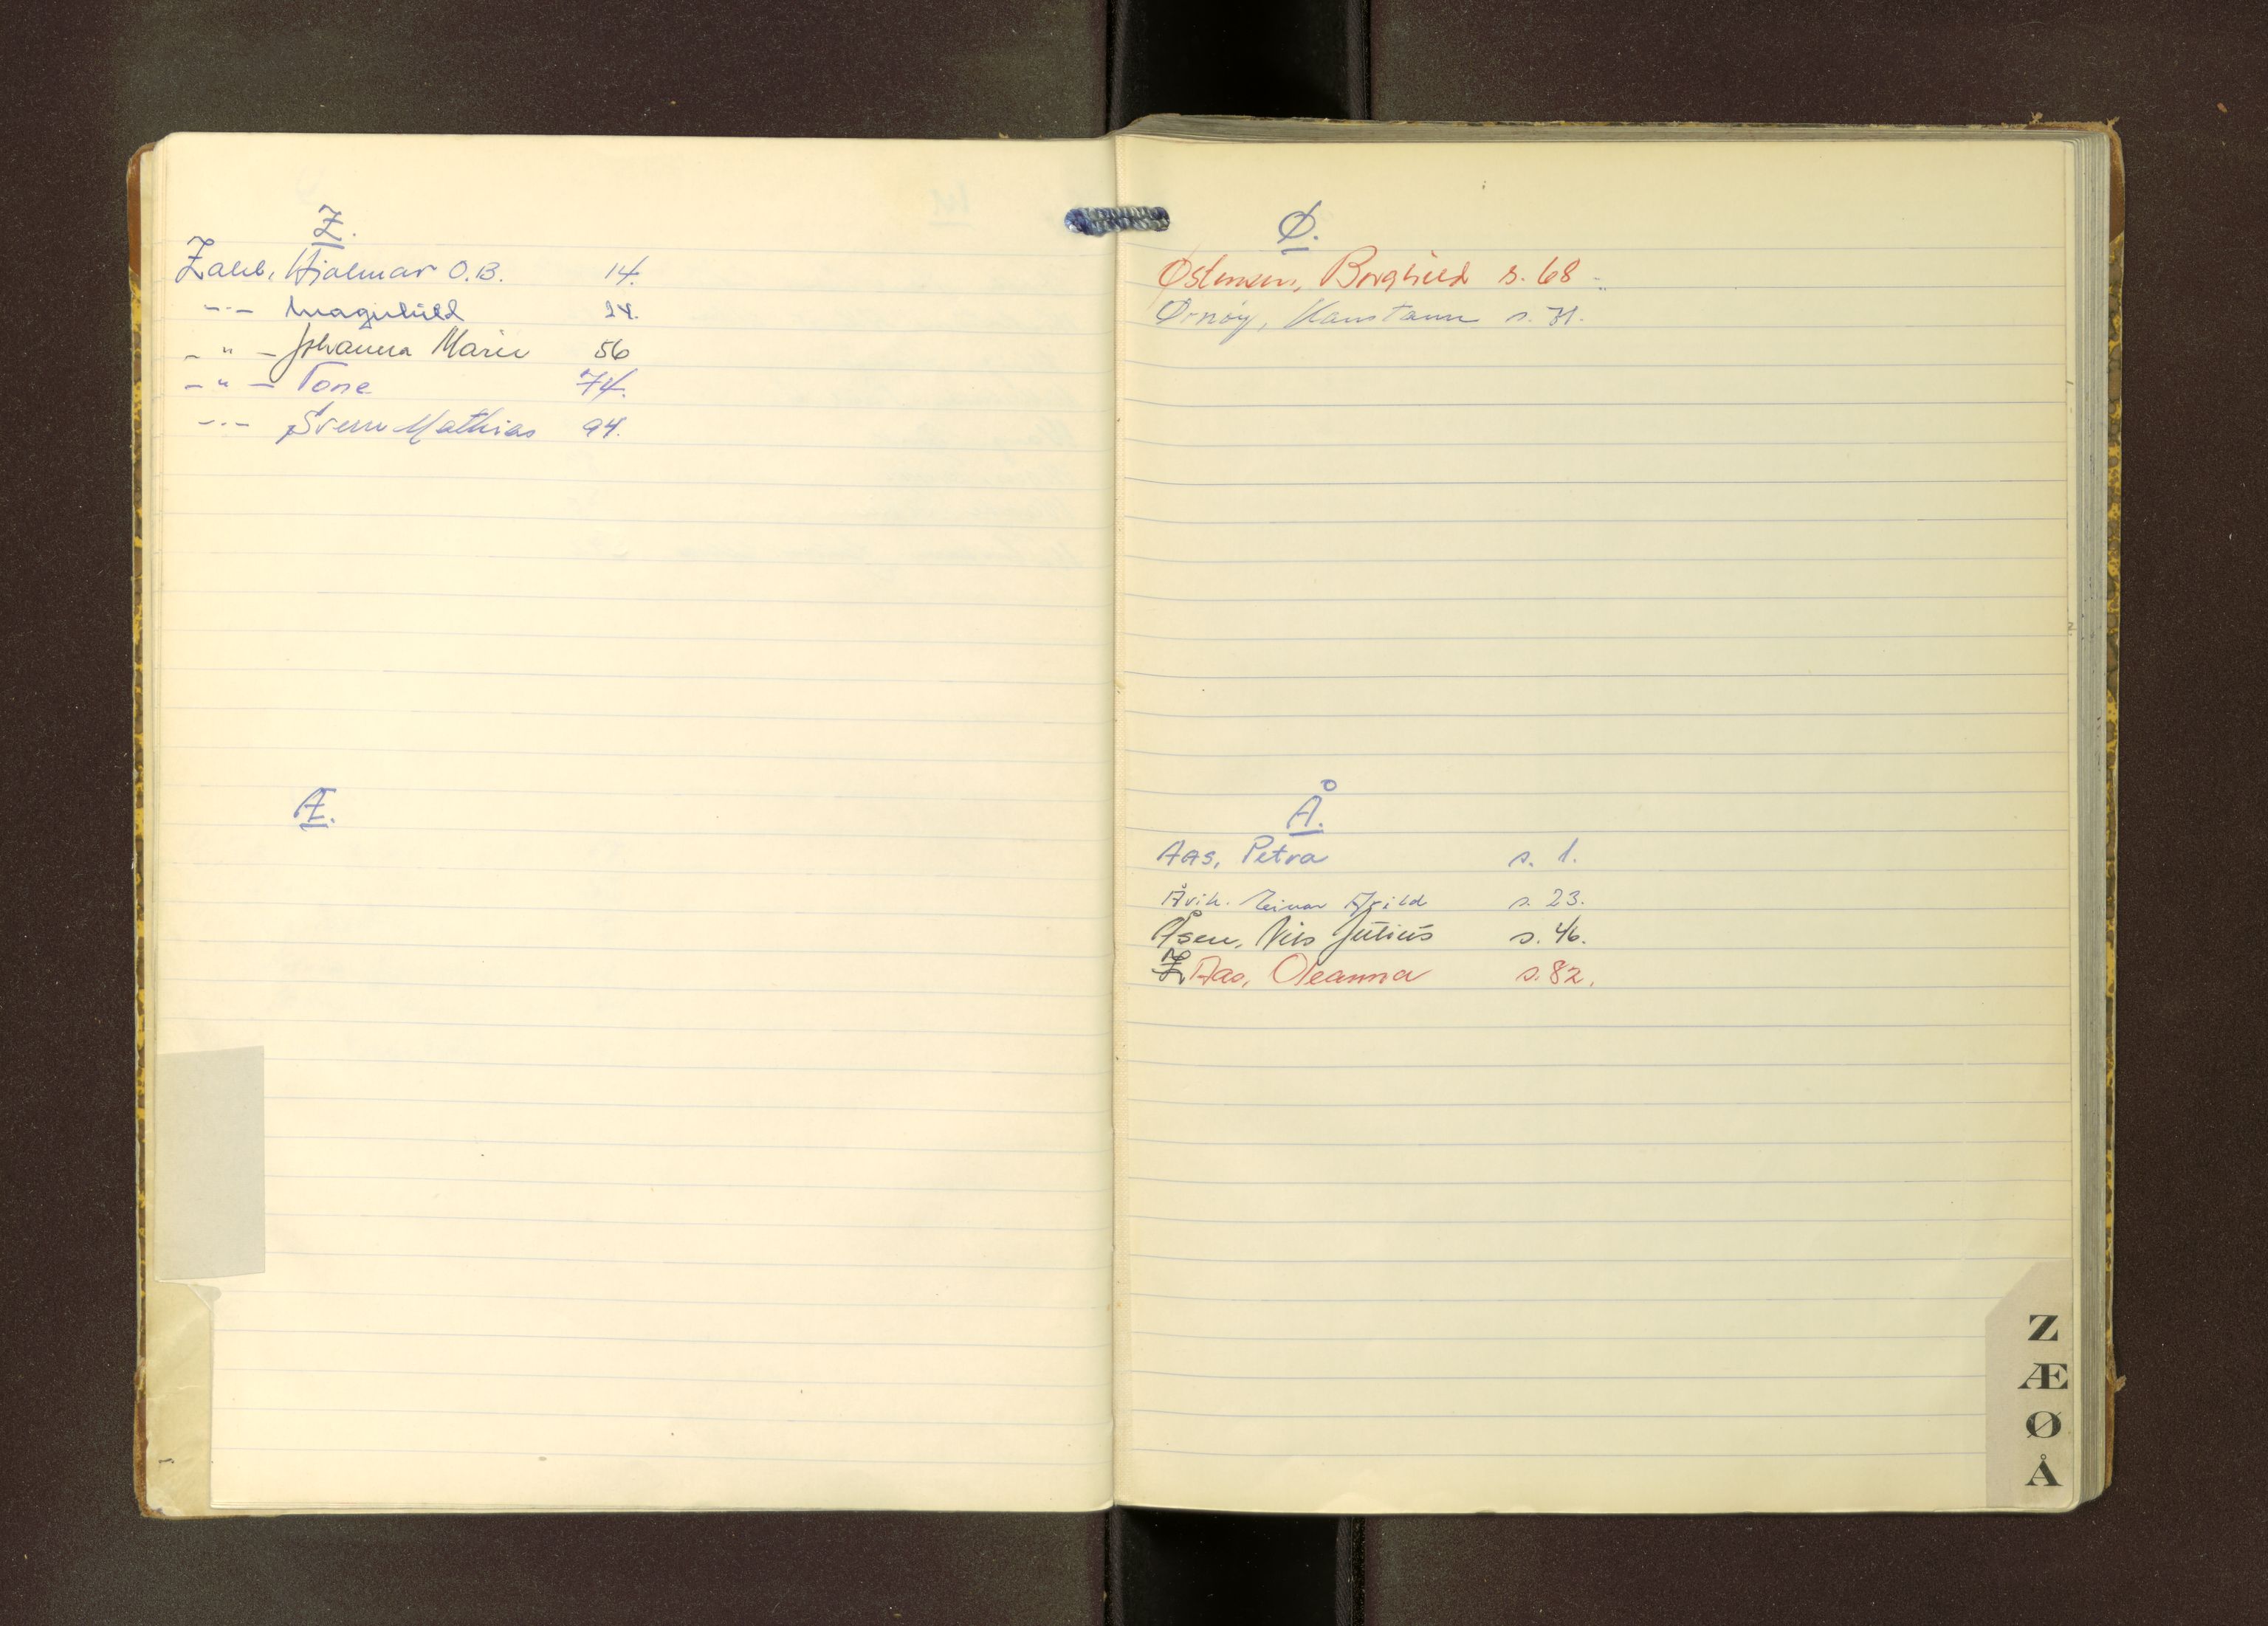 Z.
Zahl, Hjalmar O.B. 14.
-"- Magnhild 24.
-"- Johanna Marie 56
-"- Tone 74.
-"- Svenn Mathias 94.
Æ.
Ø.
Østensen, Borghild s. 68
Ørnøy, Konstanse s. 71.
Å.
Aas, Petra s. 1.
Åvik. Einar s. 23.
Åsen, Nils Julius s. 46.
Aas, Oleanna s. 82.
Z
Æ
Ø
Å